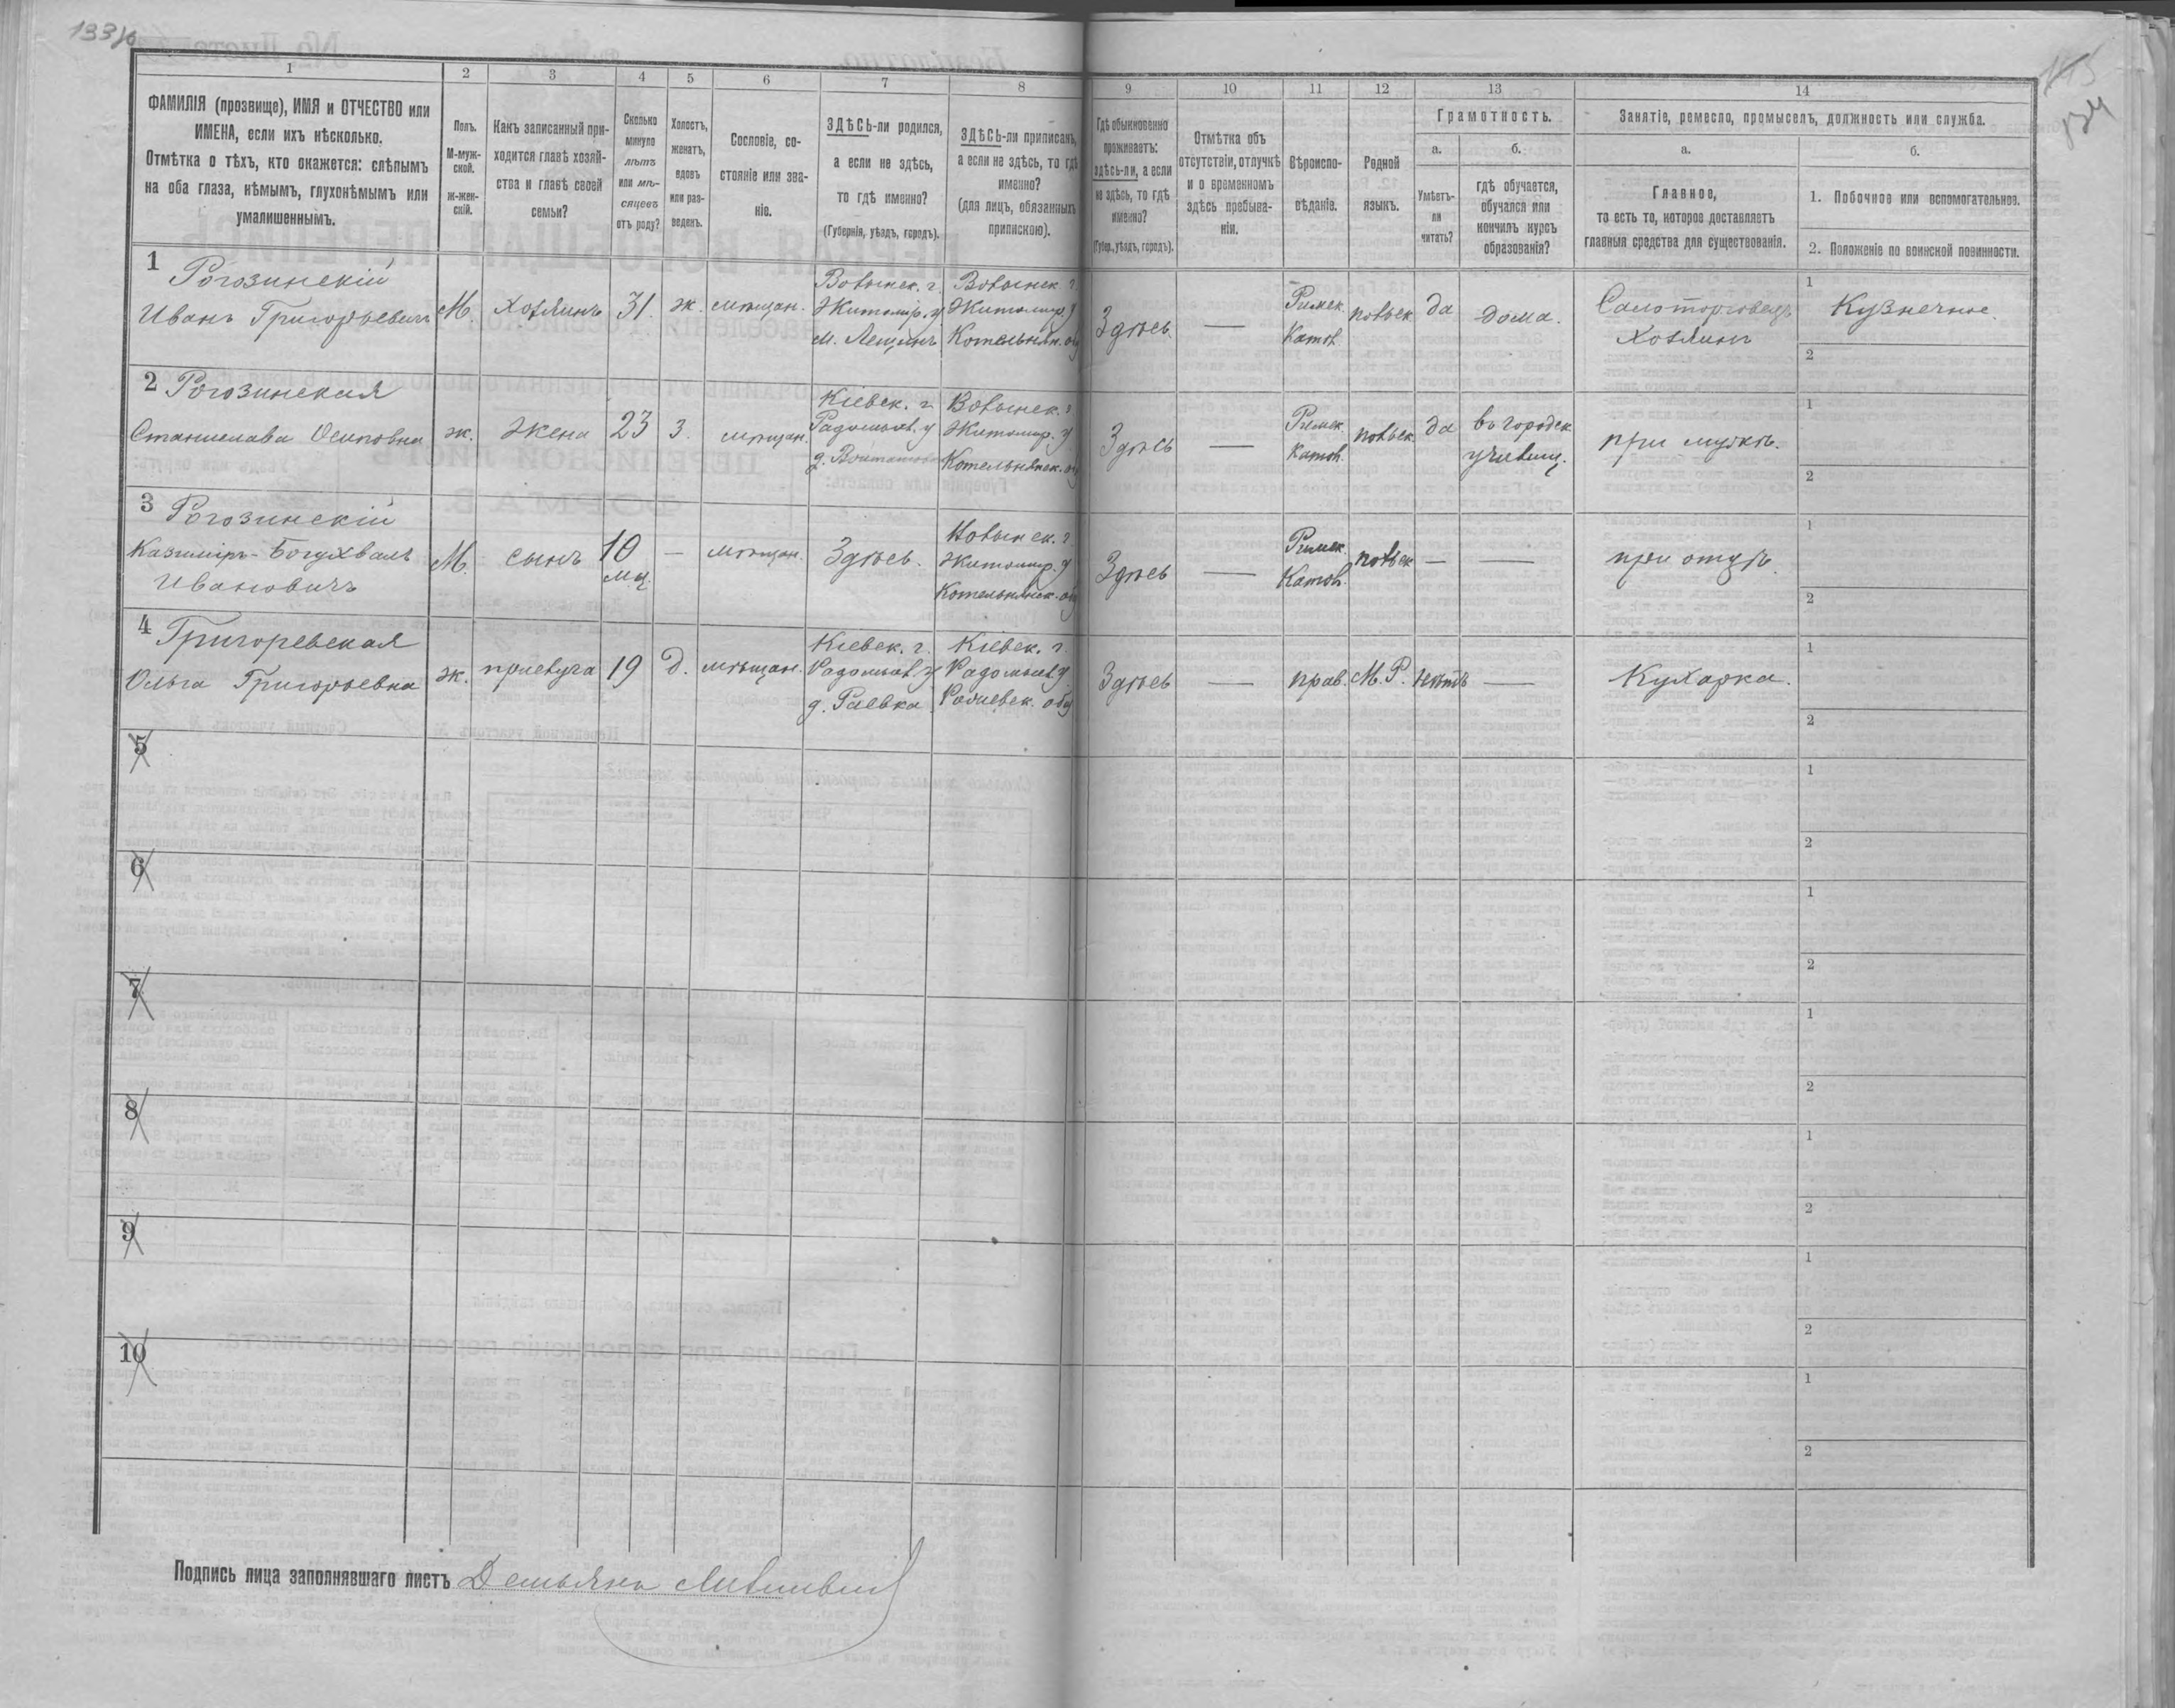 133
1 2 3 4 5 6 7 8 9 10 11 12 13 14
ФАМИЛІЯ (прозвище), ИМЯ и ОТЧЕСТВО или
ИМЕНА, если ихъ нѣсколько.
Отмѣтка о тѣхъ, кто окажется: слѣпымъ
на оба глаза, нѣмымъ, глухонѣмымъ или
умалишеннымъ.
Полъ.
М-муж-
ской.
ж-жен-
скій.
Какъ записанный при-
ходится главѣ хозяй-
ства и главѣ своей
семьи?
Сколько
минуло
лѣтъ
или мѣ-
сяцевъ
отъ роду?
Холостъ,
женатъ,
вдовъ
или раз-
веденъ.
Сословіе, со-
стояніе или зва-
ніе.
ЗДѢСЬ-ли родился,
а если не здѣсь,
то гдѣ именно?
(Губернія, уѣздъ, городъ).
ЗДѢСЬ-ли приписанъ,
а если не здѣсь, то гдѣ
именно?
(для лицъ, обязанныхъ
припискою).
Гдѣ обыкновенно
проживаетъ:
здѣсь-ли, а если
не здѣсь, то гдѣ
именно?
(Губер., уѣздъ, городъ).
Отмѣтка объ
отсутствіи, отлучкѣ
и о временномъ
здѣсь пребыва-
ніи.
Вѣроиспо-
вѣданіе.
Родной
языкъ.
Грамотность.
а.
Умѣетъ-
ли
читать?
б.
гдѣ обучается,
обучался или
кончилъ курсъ
образованія?
Занятіе, ремесло, промыселъ, должность или служба.
а.
Главное,
то есть то, которое доставляетъ
главныя средства для существованія.
б.
1. Побочное или вспомогательное.
2. Положеніе по воинской повинности.
1 Рогозинскій
Иванъ Григорьевичъ
М. Хозяинъ 31. ж. мѣщан.
Волынск. г.
Житомир. у
м. Лещинъ
Волынск. г.
Житомир. у
Котельнян. об
Здѣсь. —
Римск.
Катол.
польск. да дома.
Самоторговецъ
Хозяинъ
1 Кузнечное.
2
2 Рогозинская
Станислава Осиповна
ж. Жена 23 З. мѣщан.
Кіевск. г.
Радомысл. у
Волынск. г
Житомир. у
Котельнянск. об
Здѣсь —
Римск.
Катол.
польск. да
въ городск
училищ.
при мужѣ.
1
2
3 Рогозинскій
Казиміръ-Богухвалъ
Ивановичъ
М. сынъ 10
мц.
— мѣщан. Здѣсь.
Волынск. г
Житомир. у
Котельнянск. об
Здѣсь —
Римск.
Катол.
польск — — при отцѣ
1
2
4 Григоревская
Ольга Григорьевна
ж. прислуга 19 Д. мѣщан.
Кіевск. г.
Радомысл. у
д. Раевка
Кіевск. г.
Радомысл. у
Здѣсь — прав. М. Р. нѣтъ — Кухарка.
1
2
5
1
2
6
1
2
7
1
2
8
1
2
9
1
2
10
1
2
Подпись лица заполнявшаго листъ Демьянъ